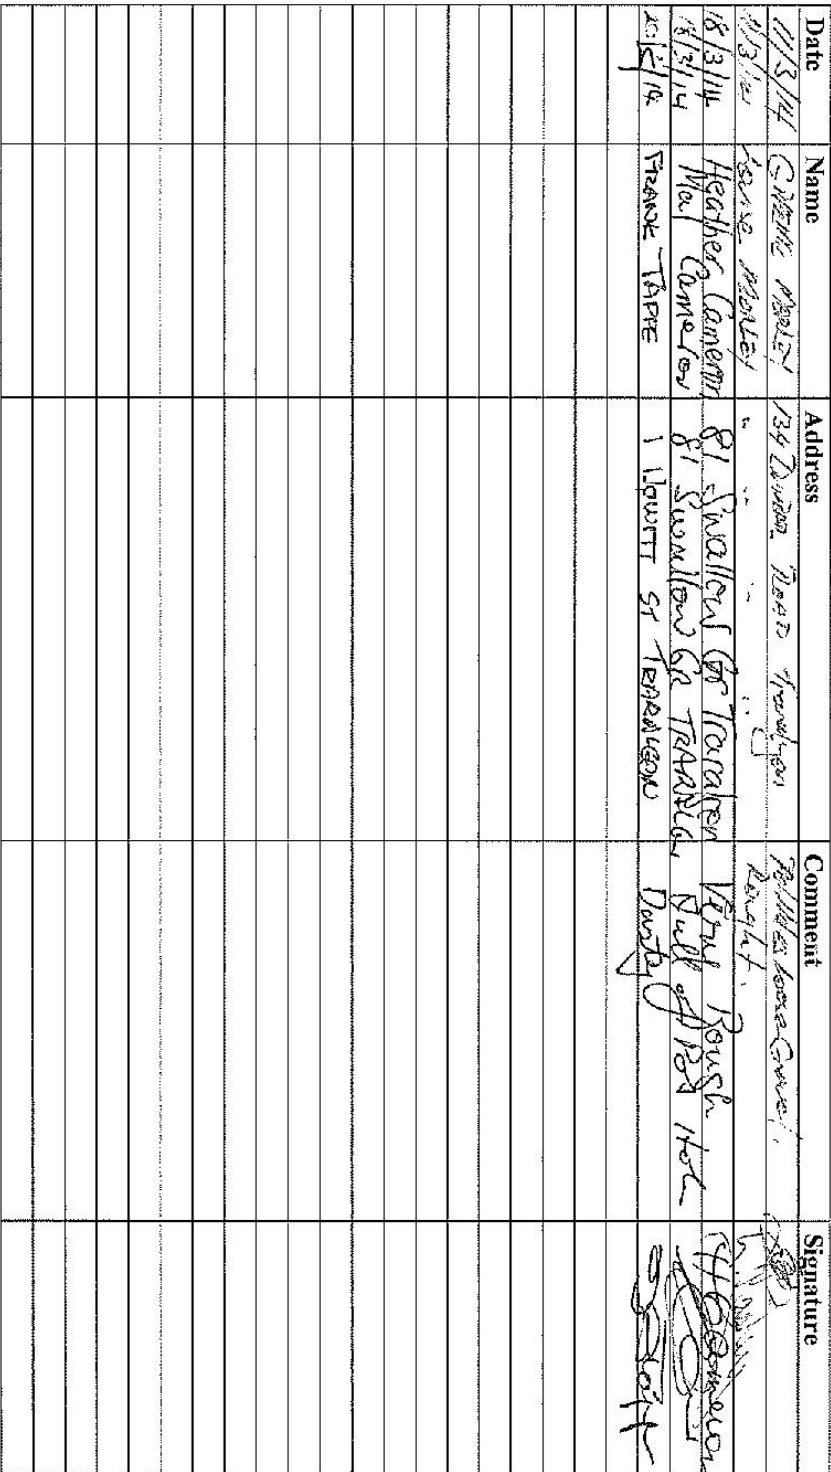 Date Name Address Comment Signature
11/3/14 134 Road Traralgon Potholes loose Gravel.
11/3/14 Louise Morley " " " " Rough.
18/3/14 Heather Cameron 81 Swallow Gr Traralgon Very Rough H Cameron
18/3/14 Mal Cameron 81 Swallow Gr TRARALGON Full of Pot Hole
FRANK TAPPE 1 HOWITT ST TRARALGON Dusty